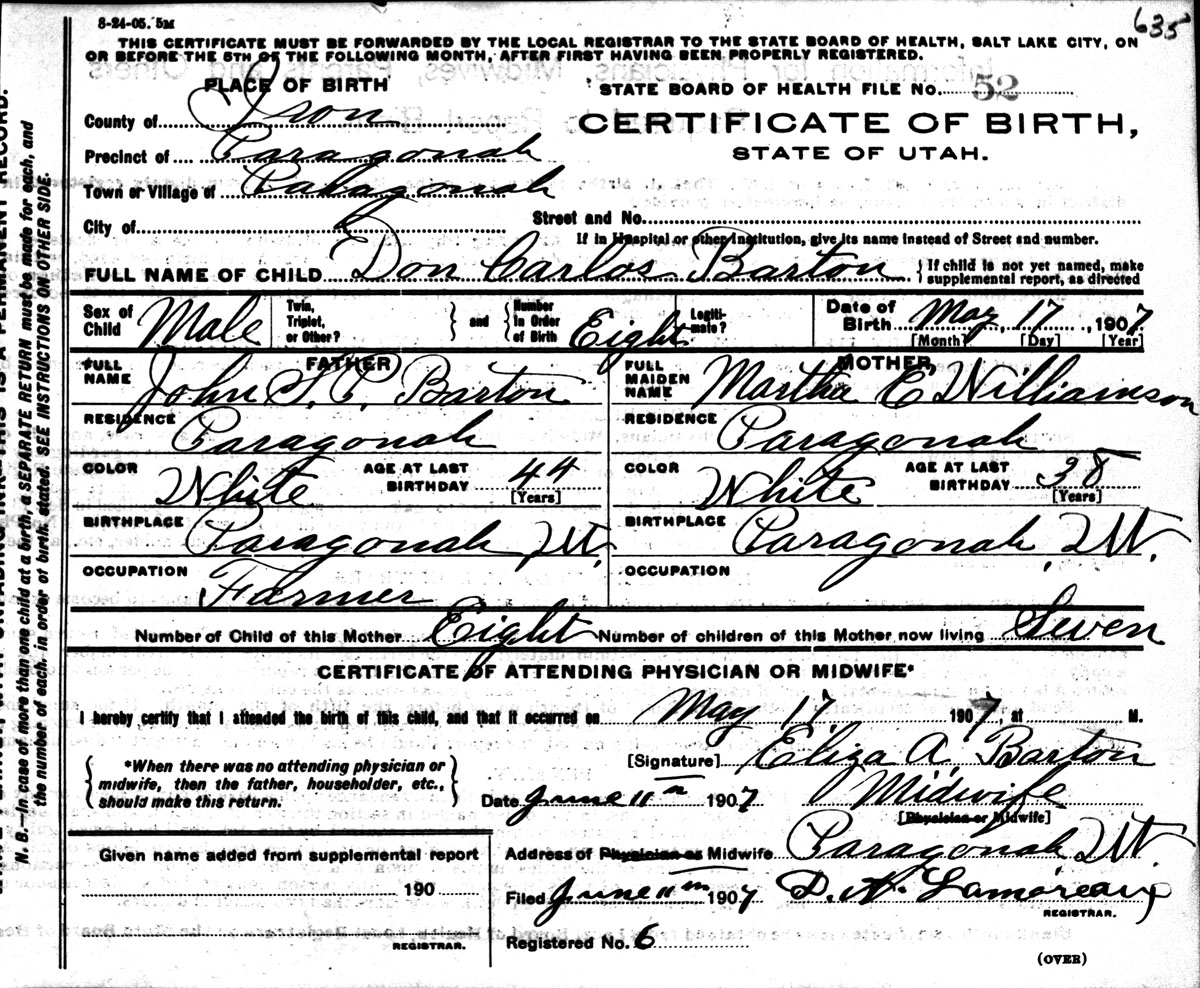 8-24-05. 5M
635
THIS CERTIFICATE MUST BE FORWARDED BY THE LOCAL REGISTRAR TO THE STATE BOARD OF HEALTH, SALT LAKE CITY, ON
OR BEFORE THE 5TH OF THE FOLLOWING MONTH, AFTER FIRST HAVING BEEN PROPERLY REGISTERED.
PLACE OF BIRTH
STATE BOARD OF HEALTH FILE No. 52
County of Iron
CERTIFICATE OF BIRTH,
Precinct of Paragonah
STATE OF UTAH.
Town or Village of Paragonah
City of
Street and No.
If in Hospital or other Institution, give its name instead of Street and number.
FULL NAME OF CHILD Don Carlos Barton { If child is not yet named, make
supplemental report, as directed
Sex of Child Male
Twin, Triplet, or Other? } and { Number in Order of Birth Eight
Legitimate?
Date of Birth May, 17, 1907
[Month] [Day] [Year]
FATHER
MOTHER
FULL NAME John S. P. Barton
FULL MAIDEN NAME Martha E Williamson
RESIDENCE Paragonah
RESIDENCE Paragonah
COLOR White AGE AT LAST BIRTHDAY 44 [Years]
COLOR White AGE AT LAST BIRTHDAY 38 [Years]
BIRTHPLACE Paragonah, Ut.
BIRTHPLACE Paragonah, Ut.
OCCUPATION Farmer
OCCUPATION
Number of Child of this Mother Eight Number of children of this Mother now living Seven
CERTIFICATE OF ATTENDING PHYSICIAN OR MIDWIFE*
I hereby certify that I attended the birth of this child, and that it occurred on May 17 1907, at M.
*When there was no attending physician or
midwife, then the father, householder, etc.,
should make this return.
[Signature] Eliza A. Barton
Date June 11th 1907 Midwife
[Physician or Midwife]
Given name added from supplemental report
190
REGISTRAR.
Address of Physician or Midwife Paragonah Ut.
Filed June 11th 1907 D. A. Lamoreaux
REGISTRAR.
Registered No. 6
(OVER)
N. B.—In case of more than one child at a birth, a SEPARATE RETURN must be made for each, and
the number of each, in order of birth, stated. SEE INSTRUCTIONS ON OTHER SIDE.